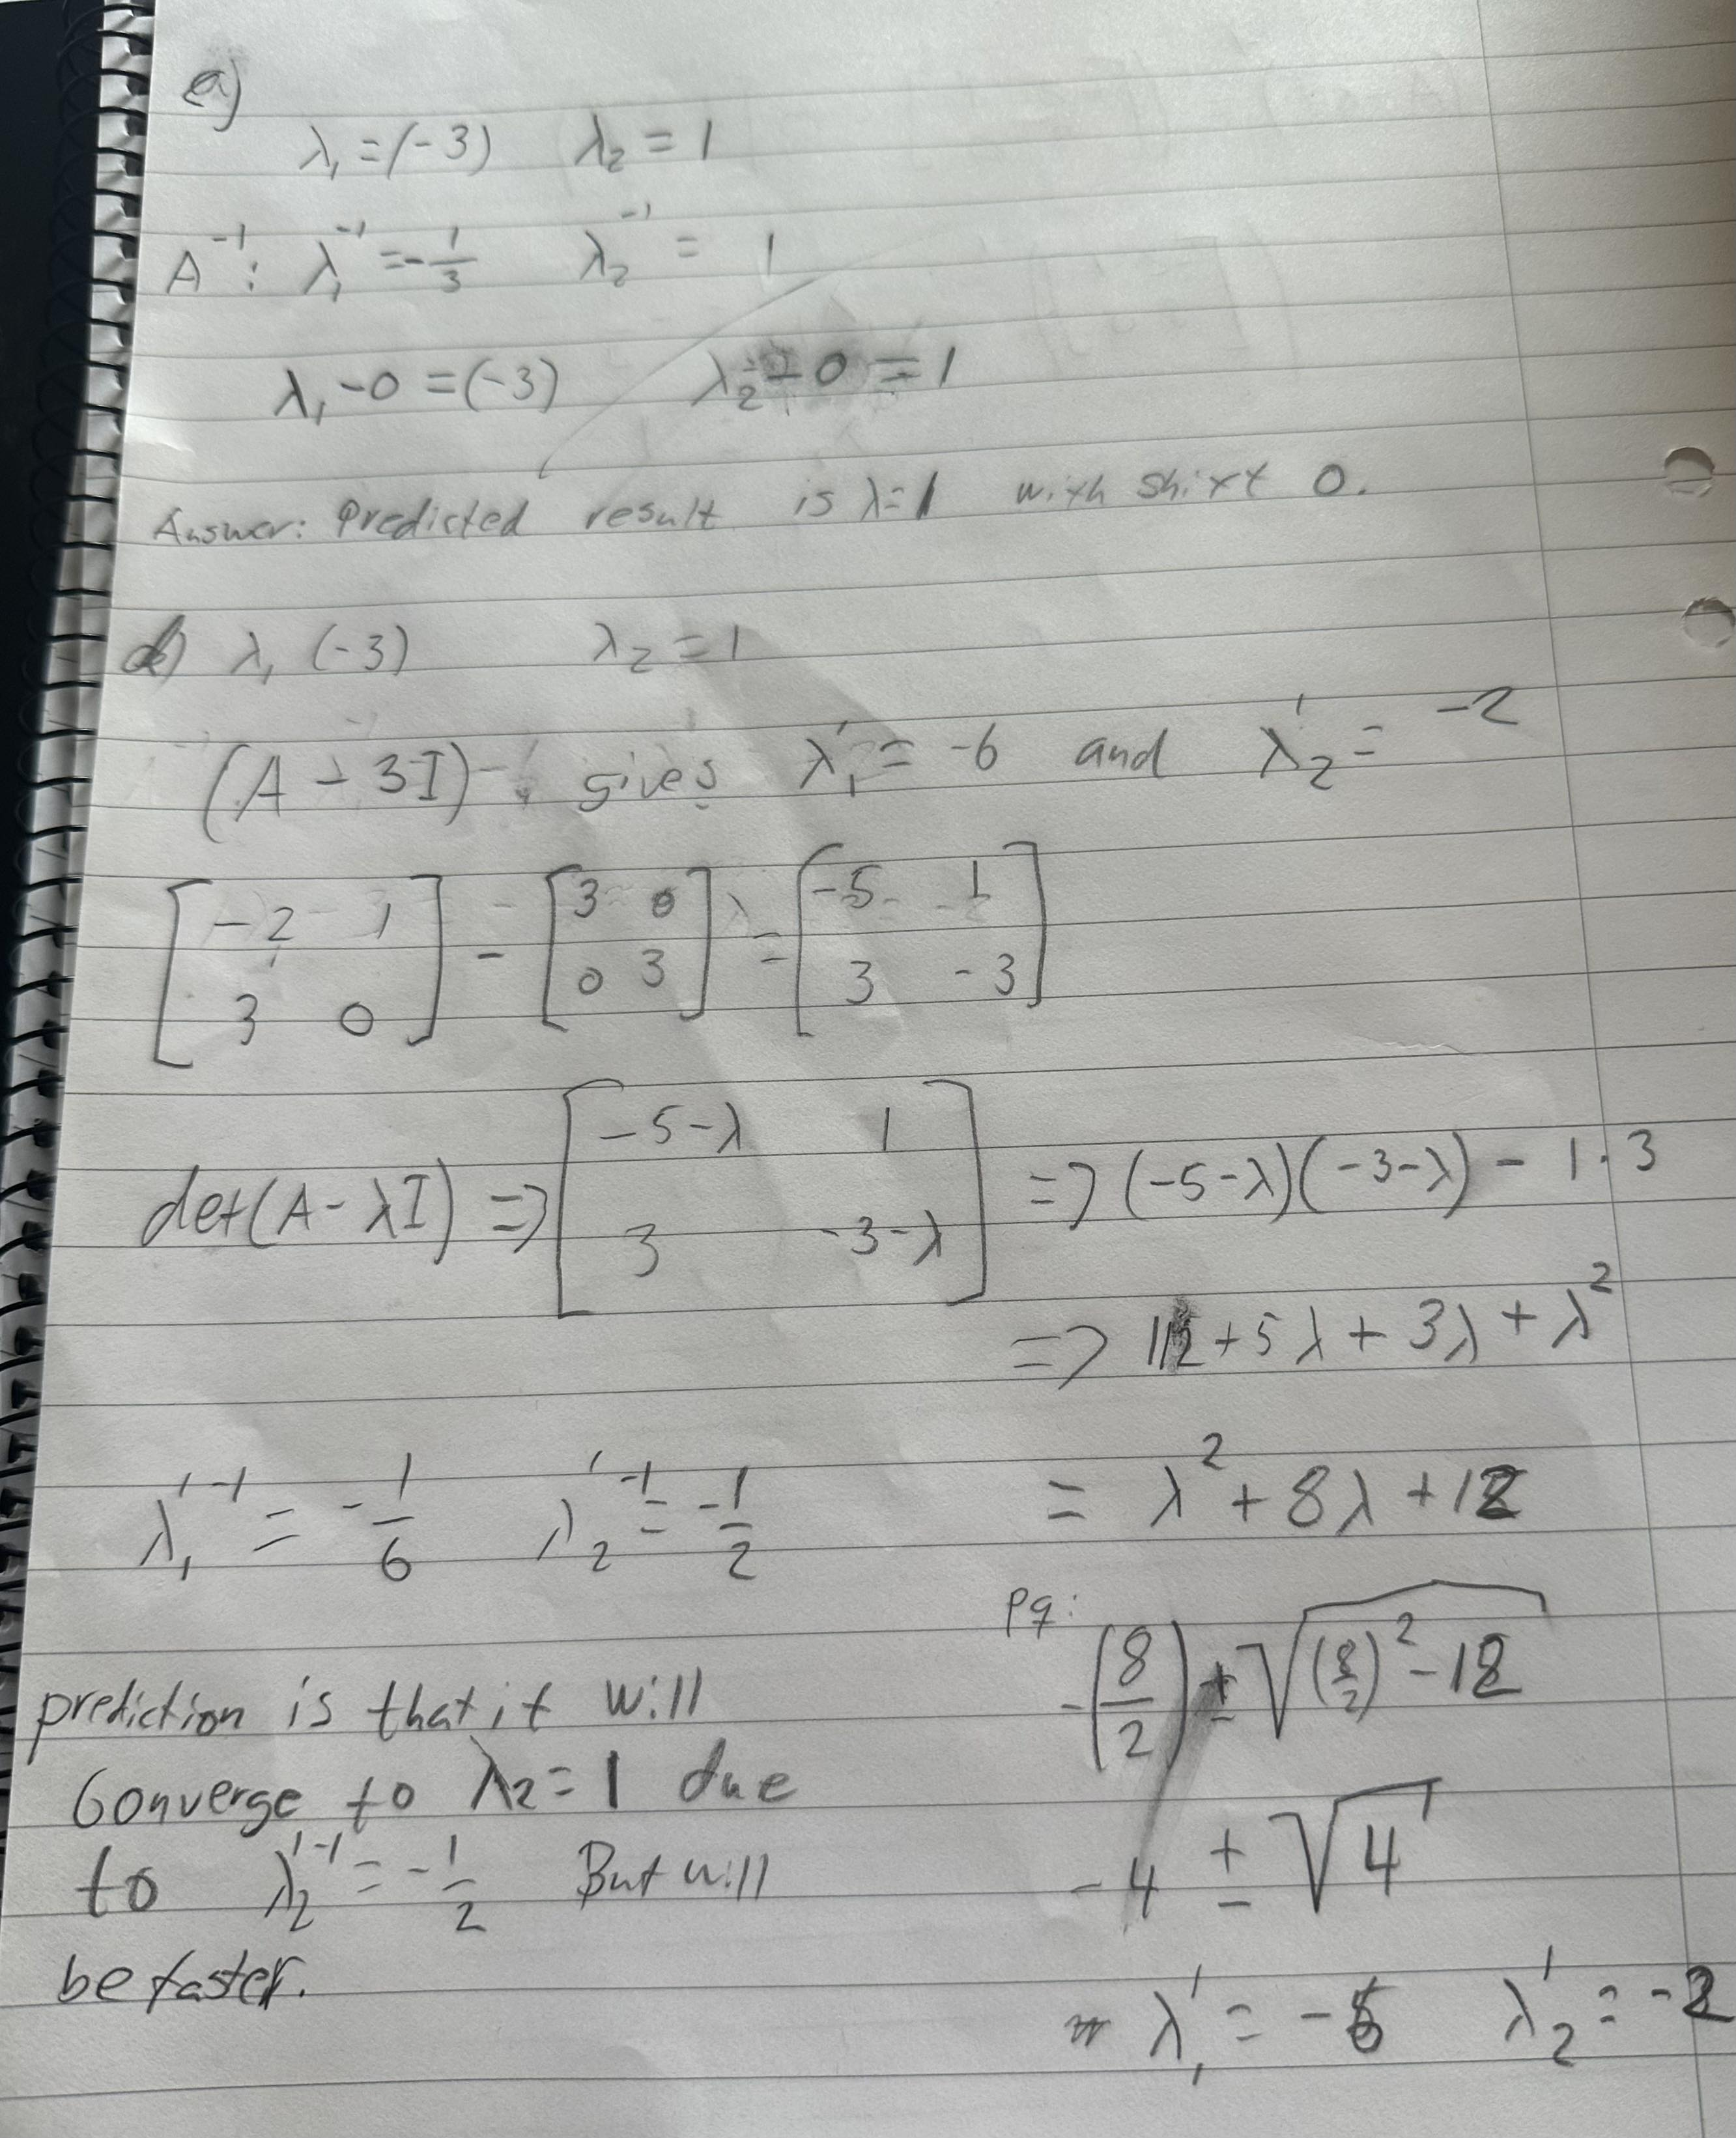 a)
λ₁ = (-3) λ₂ = 1
A⁻¹ : λ₁⁻¹ = -1/3 λ₂⁻¹ = 1
λ₁ - 0 = (-3) λ₂ - 0 = 1
Answer: Predicted result is λ=1 with shift 0.
λ₁ (-3) λ₂ = 1
(A - 3I) gives λ₁' = -6 and λ₂' = -2
[-2 1; 3 0] - [3 0; 0 3] = [-5 1; 3 -3]
det(A - λI) => [-5-λ 1; 3 -3-λ] => (-5-λ)(-3-λ) - 1·3
=> 12 + 5λ + 3λ + λ²
= λ² + 8λ + 12
λ₁'⁻¹ = -1/6 λ₂'⁻¹ = -1/2
pq:
-(8/2) ± √((8/2)² - 12)
-4 ± √4
λ₁' = -6 λ₂' = -2
prediction is that it will
converge to λ₂ = 1 due
to λ₂'⁻¹ = -1/2 But will
be faster.